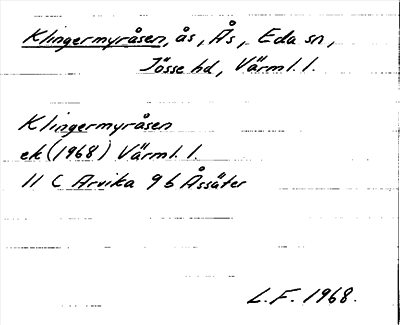 Klingermyråsen, ås, Ås, Eda sn,
Jösse hd, Värml. l.
Klingermyråsen
ek (1968) Värml. l.
11 C Arvika 9 b Åssäter
L.F. 1968.